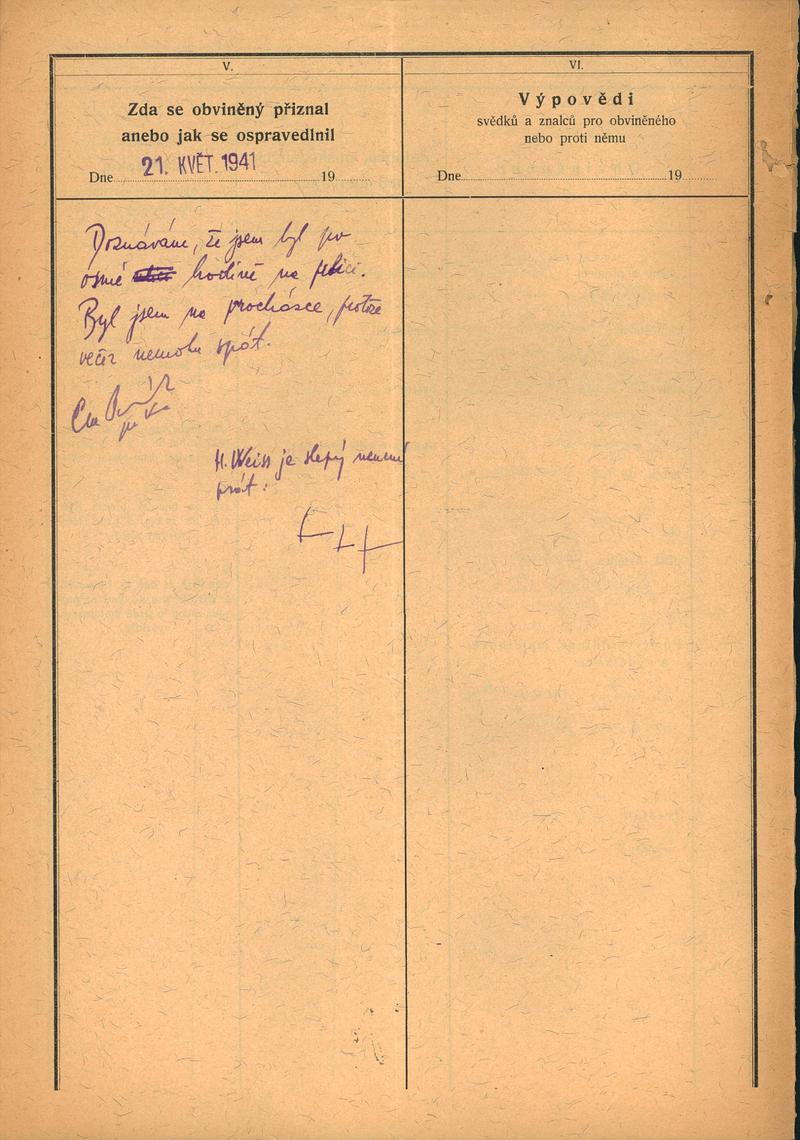 V.
Zda se obviněný přiznal
anebo jak se ospravedlnil
Dne 21. KVĚT. 1941 19
Doznávám, že jsem byl po
osmé hodině na ulici.
Byl jsem na procházce, protože
večer nemohu spát.
H. Weiss je slepý neumí
psát:
VI.
Výpovědi
svědků a znalců pro obviněného
nebo proti němu
Dne 19